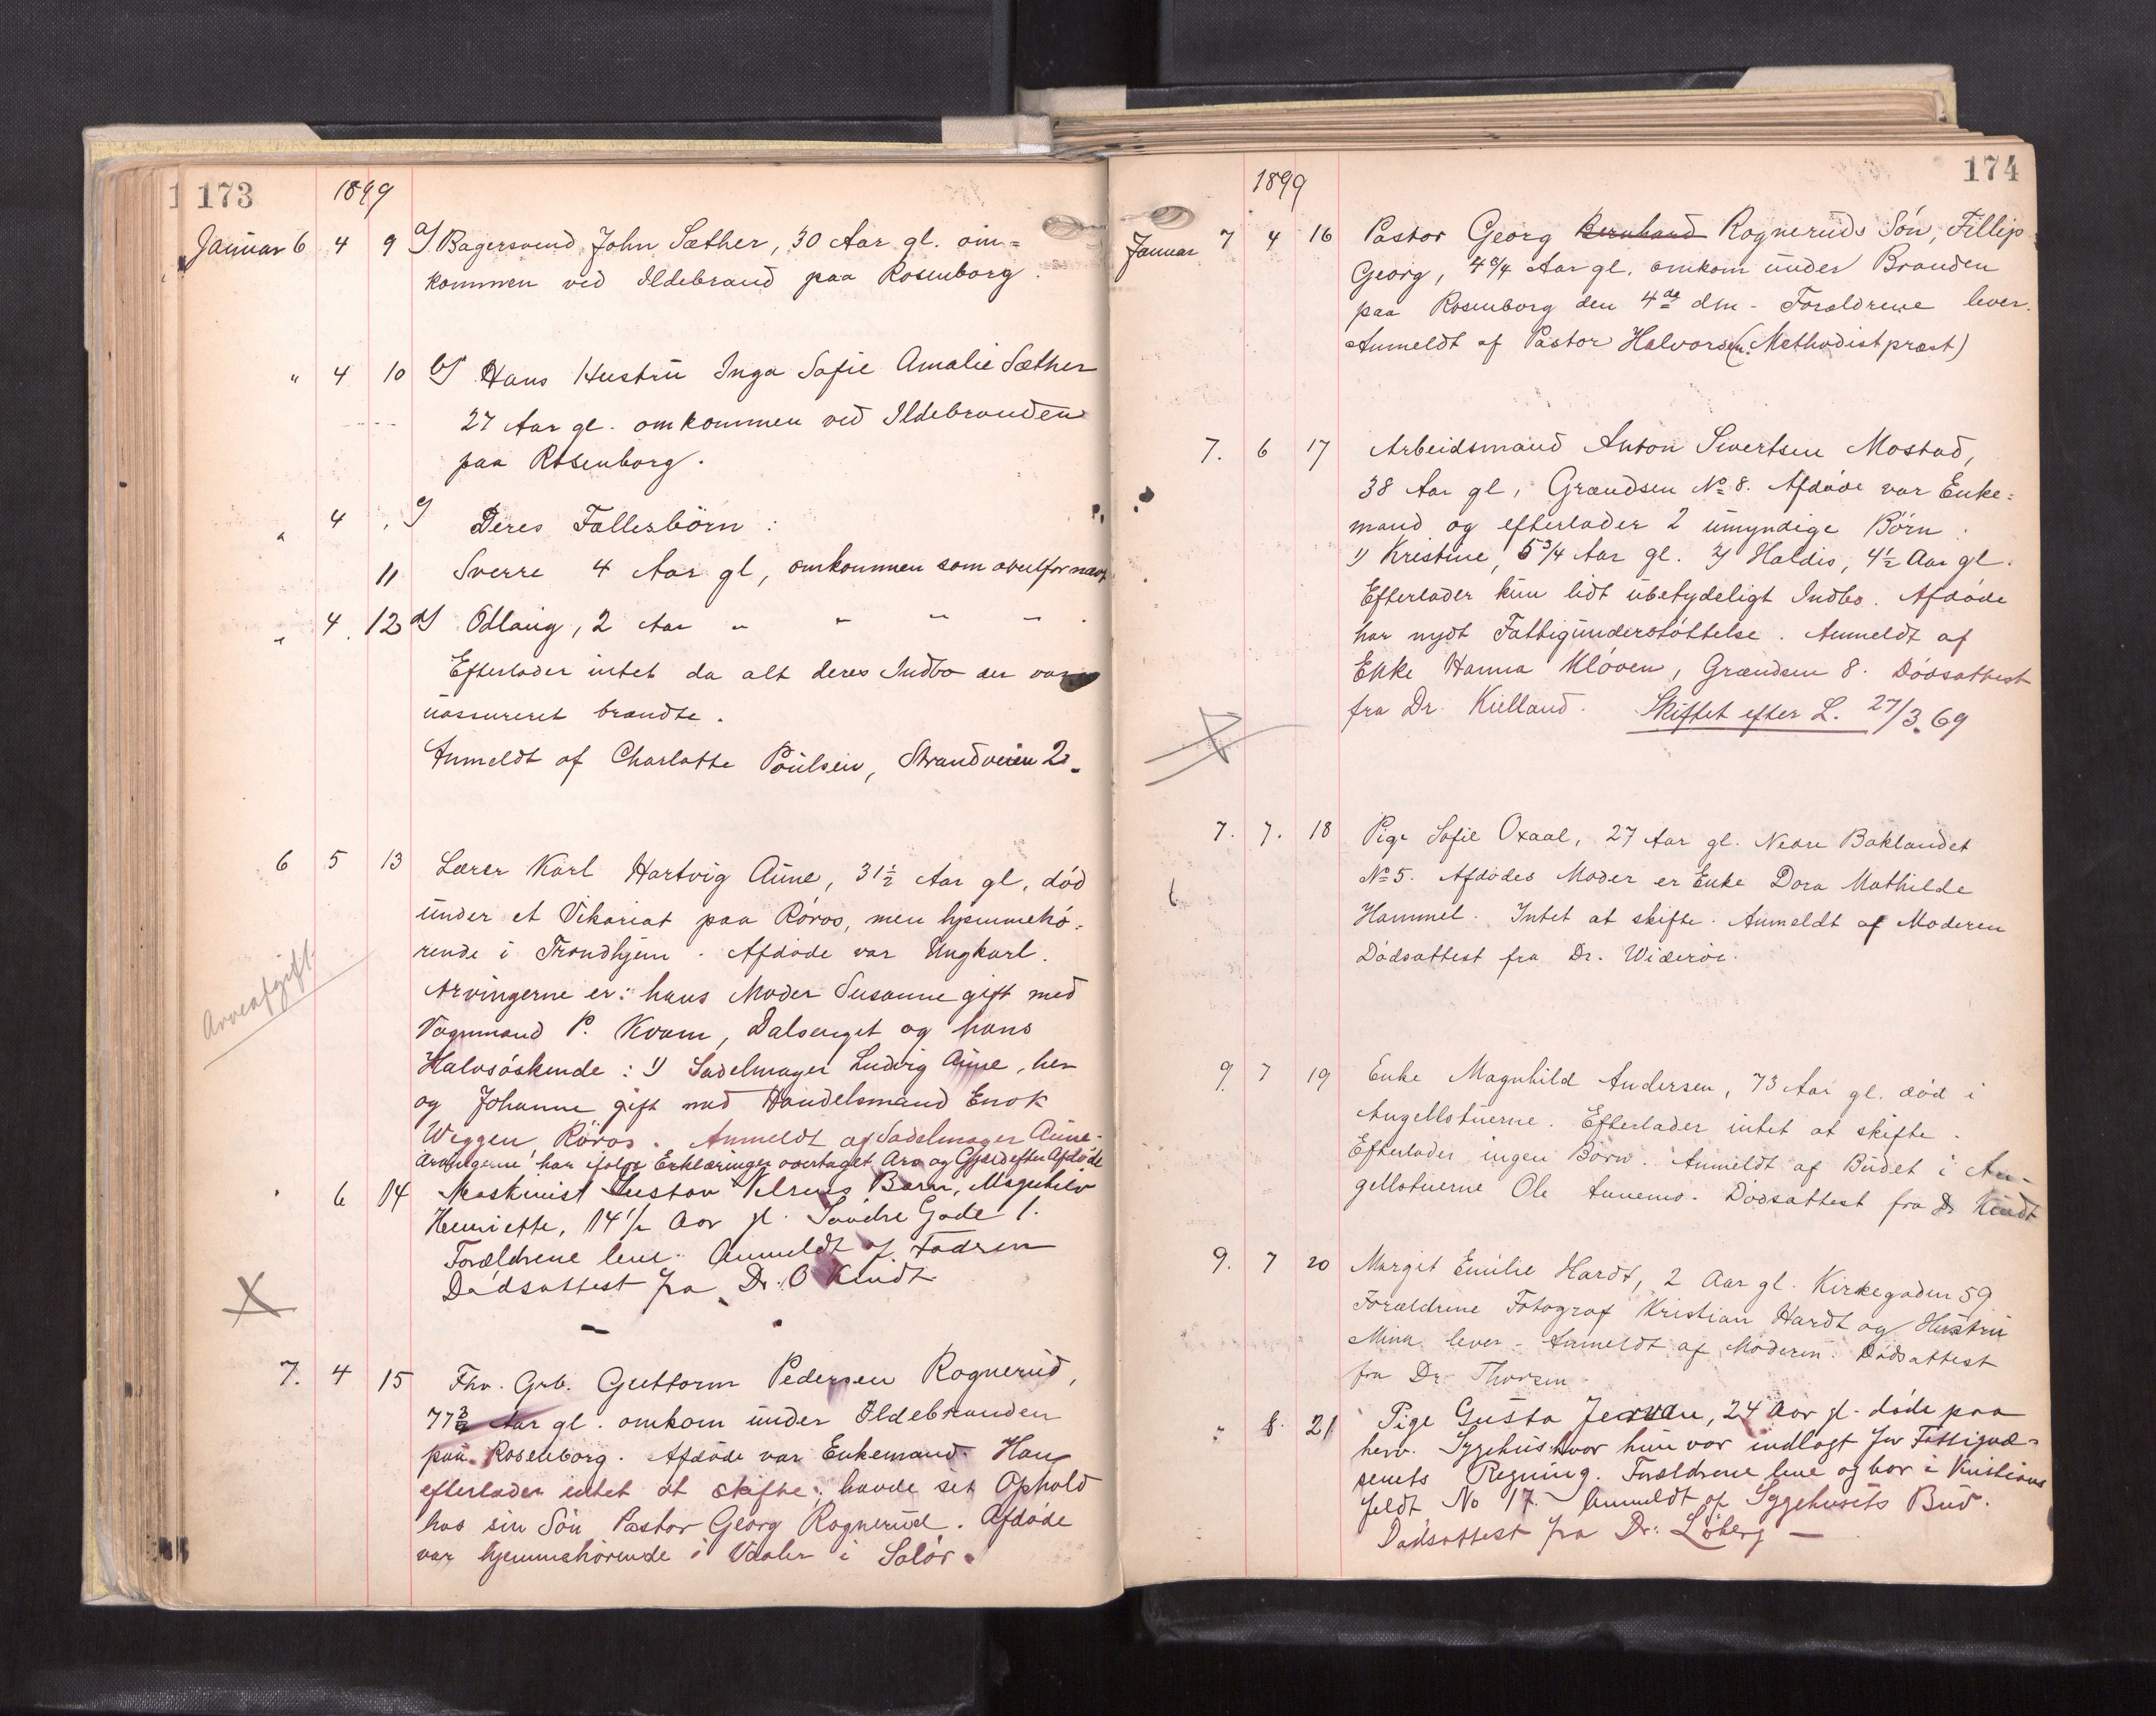 173
1899
Januar 6 4 9 a) Bagersvend John Sæther, 30 Aar gl. om=
kommen ved Ildebrand paa Rosenborg.
" 4 10 b) Hans Hustru Inga Sofie Amalie Sæther
27 Aar gl. omkommen ved Ildebranden
paa Rosenborg.
" 4 c) Deres Fællesbörn:
11 Sverre 4 Aar gl, omkommen som ovenfor nævt
" 4 12 d) Odlaug, 2 Aar " " " "
Efterlader intet da alt deres Indbo der var
uassureret brændte.
Anmeldt af Charlotte Poulsen, Strandveien 2.
6 5 13 Lærer Karl Hartvig Aune, 31½ Aar gl, död
under et Vikariat paa Röros, men hjemmehö=
rende i Trondhjem. Afdöde var Ungkarl.
Arvingerne er: hans Moder Susanne gift med
Vognmand P. Kvam, Dalsenget og hans
Halvsöskende: 1) Sadelmager Ludvig Aune, her
og Johanne gift med Handelsmand Enok
Weggen Röros. Anmeldt af Sadelmager Aune.
Arvingerne har ifölge Erklæringer overtaget Arv og Gjæld efter Afdöde
Arveafgift
" 6 14 Maskinist Gustav Barn, Magnhild
Henriette, 14½ Aar gl. Søndre Gade 1.
Forældrene leve. Anmeldt af Fadren
Dødsattest fra Dr. O Kindt
7. 4 15 Fhv. Grb. Guttorm Pedersen Rognerud,
77 Aar gl. omkom under Ildebranden
paa Rosenborg. Afdöde var Enkemand. Han
efterlader intet at skifte; havde sit Ophold
hos sin Sön Pastor Georg Rognerud. Afdöde
var hjemmehörende i Vaaler i Solör.
174
1899
Januar 7 4 16 Pastor Georg Bernhard Rogneruds Sön, Fillip
Georg, Aar gl. omkom under Branden
paa Rosenborg den 4de dm - Forældrene lever.
Anmeldt af Pastor Halvorsen (Methodistpræst)
7. 6 17 Arbeidsmand Anton Sivertsen Mostad,
38 Aar gl, Grændsen No 8. Afdöde var Enke=
mand og efterlader 2 umyndige Börn.
1) Kristine, 5¾ Aar gl. 2) Haldis, 4½ Aar gl.
Efterlader kun lidt ubetydeligt Indbo. Afdöde
har nydt Fattigunderstöttelse. Anmeldt af
Enke Hanna Klöven, Grændsen 8. Dödsattest
fra Dr. Kielland. Skiftet efter L. 27/3.69
7. 7. 18 Pige Sofie Oxaal, 27 Aar gl. Nedre Baklandet
No 5. Afdödes Moder er Enke Dora Mathilde
Hammel. Intet at skifte. Anmeldt af Moderen
Dödsattest fra Dr. Wideröe.
9. 7 19 Enke Magnhild Andersen, 73 Aar gl. död i
Angellstuerne. Efterlader intet at skifte.
Efterlader ingen Börn. Anmeldt af Budet i An-
gellstuerne Ole Aunemo. Dödsattest fra Dr Kindt
9. 7 20 Margit Emilie Hardt, 2 Aar gl. Kirkegaden 59
Forældrene Fotograf Kristian Hardt og Hustru
Mina lever - Anmeldt af Moderen. Dödsattest
fra Dr. Thorsen
" 8 21 Pige Gusta Jervan, 24 Aar gl. døde paa
herv. Sygehus hvor hun var indlagt for Fattigvæ=
senets Regning. Forældrene leve og bor i Kristians
feldt No 17. Anmeldt af Sygehusets Bud.
Dødsattest fra Dr. Løberg —